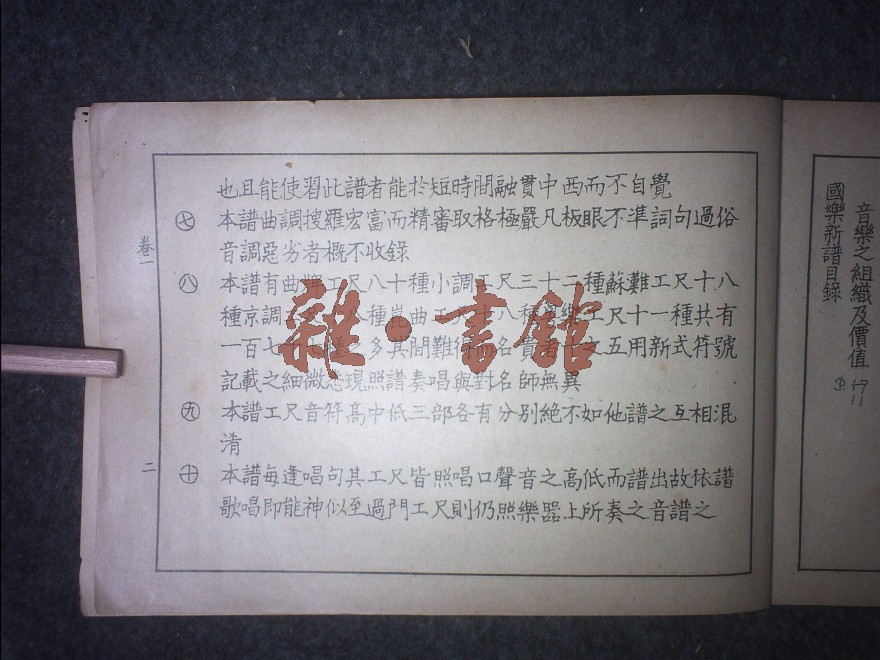 也且能使習此譜者能於短時間融貫中西而不自覺
㊆ 本譜曲調搜羅宏富而精審取格極嚴凡板眼不準詞句過俗
音調惡劣者概不收錄
㊇ 本譜有曲牌工尺八十種小調工尺三十二種蘇灘工尺十八
種京調工種崑曲工八種工尺十一種共有
一百七種多其間難得名貴者五用新式符號
記載之細微悉現照譜奏唱與對名師無異
㊈ 本譜工尺音符高中低三部各有分別絕不如他譜之互相混
淆
㊉ 本譜每逢唱句其工尺皆照唱口聲音之高低而譜出故依譜
歌唱即能神似至過門工尺則仍照樂器上所奏之音譜之
卷一
二
雜·書館
國樂新譜目錄
音樂之組織及價值